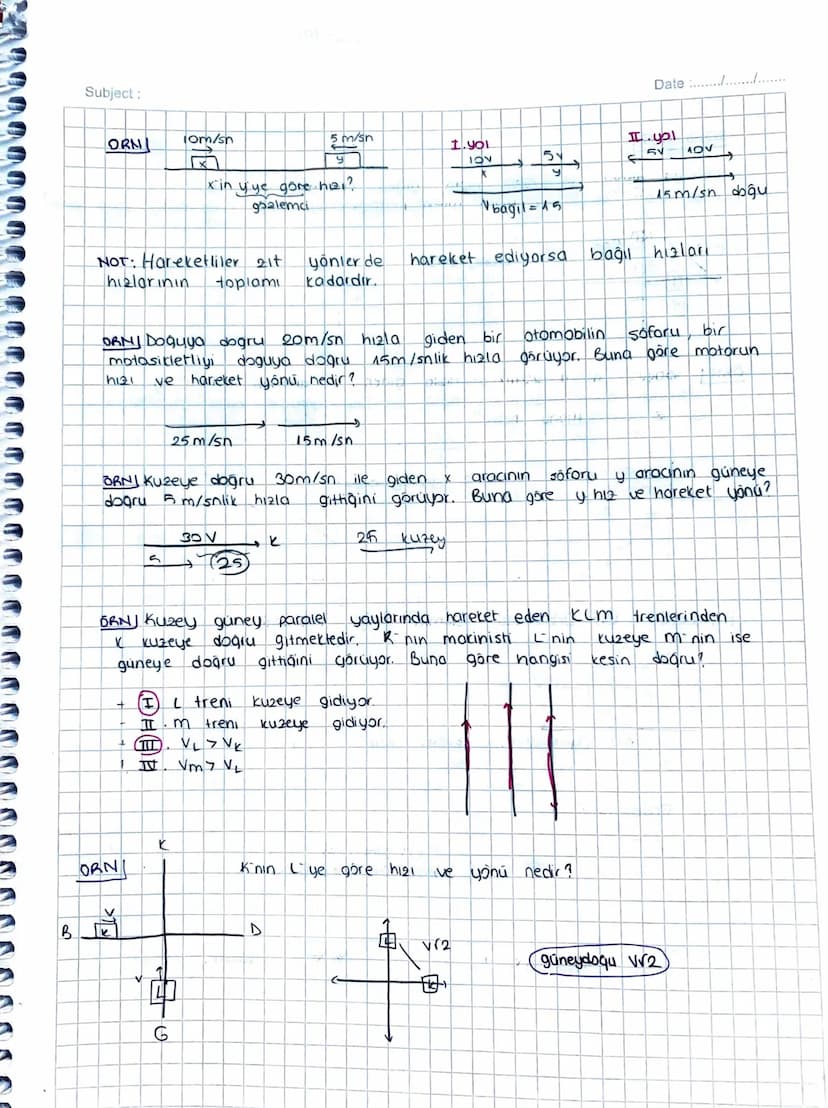 Subject :
Date :......../......../........
ORN| 10m/sn 5 m/sn
x y
x'in y'ye göre hızı?
gözlemci
I.yol
10v 5v
x y
Vbağıl = 15
II.yol
5v 10v
15m/sn doğu
NOT: Hareketliler zıt yönlerde hareket ediyorsa bağıl hızları
hızlarının toplamı kadardır.
ORN| Doğuya doğru 20m/sn hızla giden bir otomobilin şöforu, bir
motosikletliyi doguya doğru 15m/snlik hızla görüyor. Buna göre motorun
hızı ve hareket yönü nedir?
25m/sn 15m/sn
ÖRN| Kuzeye doğru 30m/sn ile giden x aracının şöforu y aracının güneye
doğru 5 m/snlik hızla gittiğini görüyor. Buna göre y hız ve hareket yönü?
30V K 25 kuzey
5 25
ÖRN| Kuzey güney paralel yaylarında hareket eden KLM trenlerinden
K kuzeye doğru gitmektedir. K'nın makinisti L'nin kuzeye M'nin ise
güneye doğru gittiğini görüyor. Buna göre hangisi kesin doğru?
+ I L treni kuzeye gidiyor.
- II. m treni kuzeye gidiyor.
+ III. VL > VK
! IV. Vm > VL
ORN| K'nın L'ye göre hızı ve yönü nedir?
K
V
B K D
V L
G
L V√2
K
güneydoğu V√2